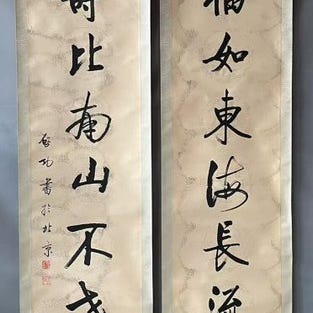 福如東海長流
比南山不老
启功書於北京